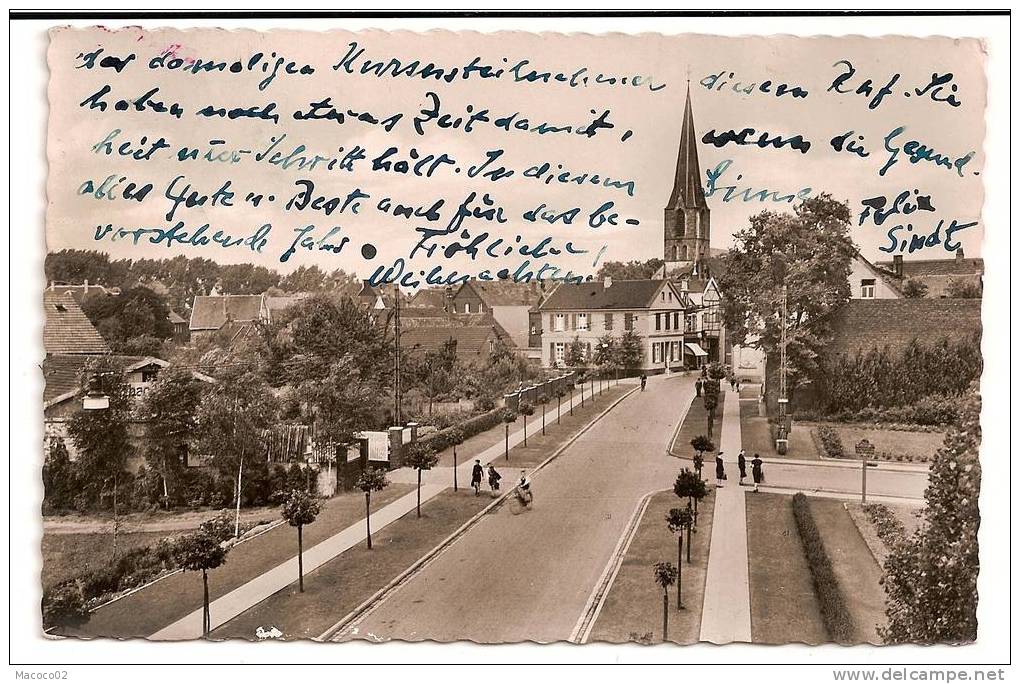 der damaligen Kursusteilnehmer diesem Ruf. Sie
haben noch etwas Zeit damit, wenn die Gesund-
heit nur Schritt hält. In diesem Sinne
alles Gute u. Beste auch für das be-
vorstehende Jahr. Fröhliche
Weihnachten,
Sindt
Macoco02
www.delcampe.net